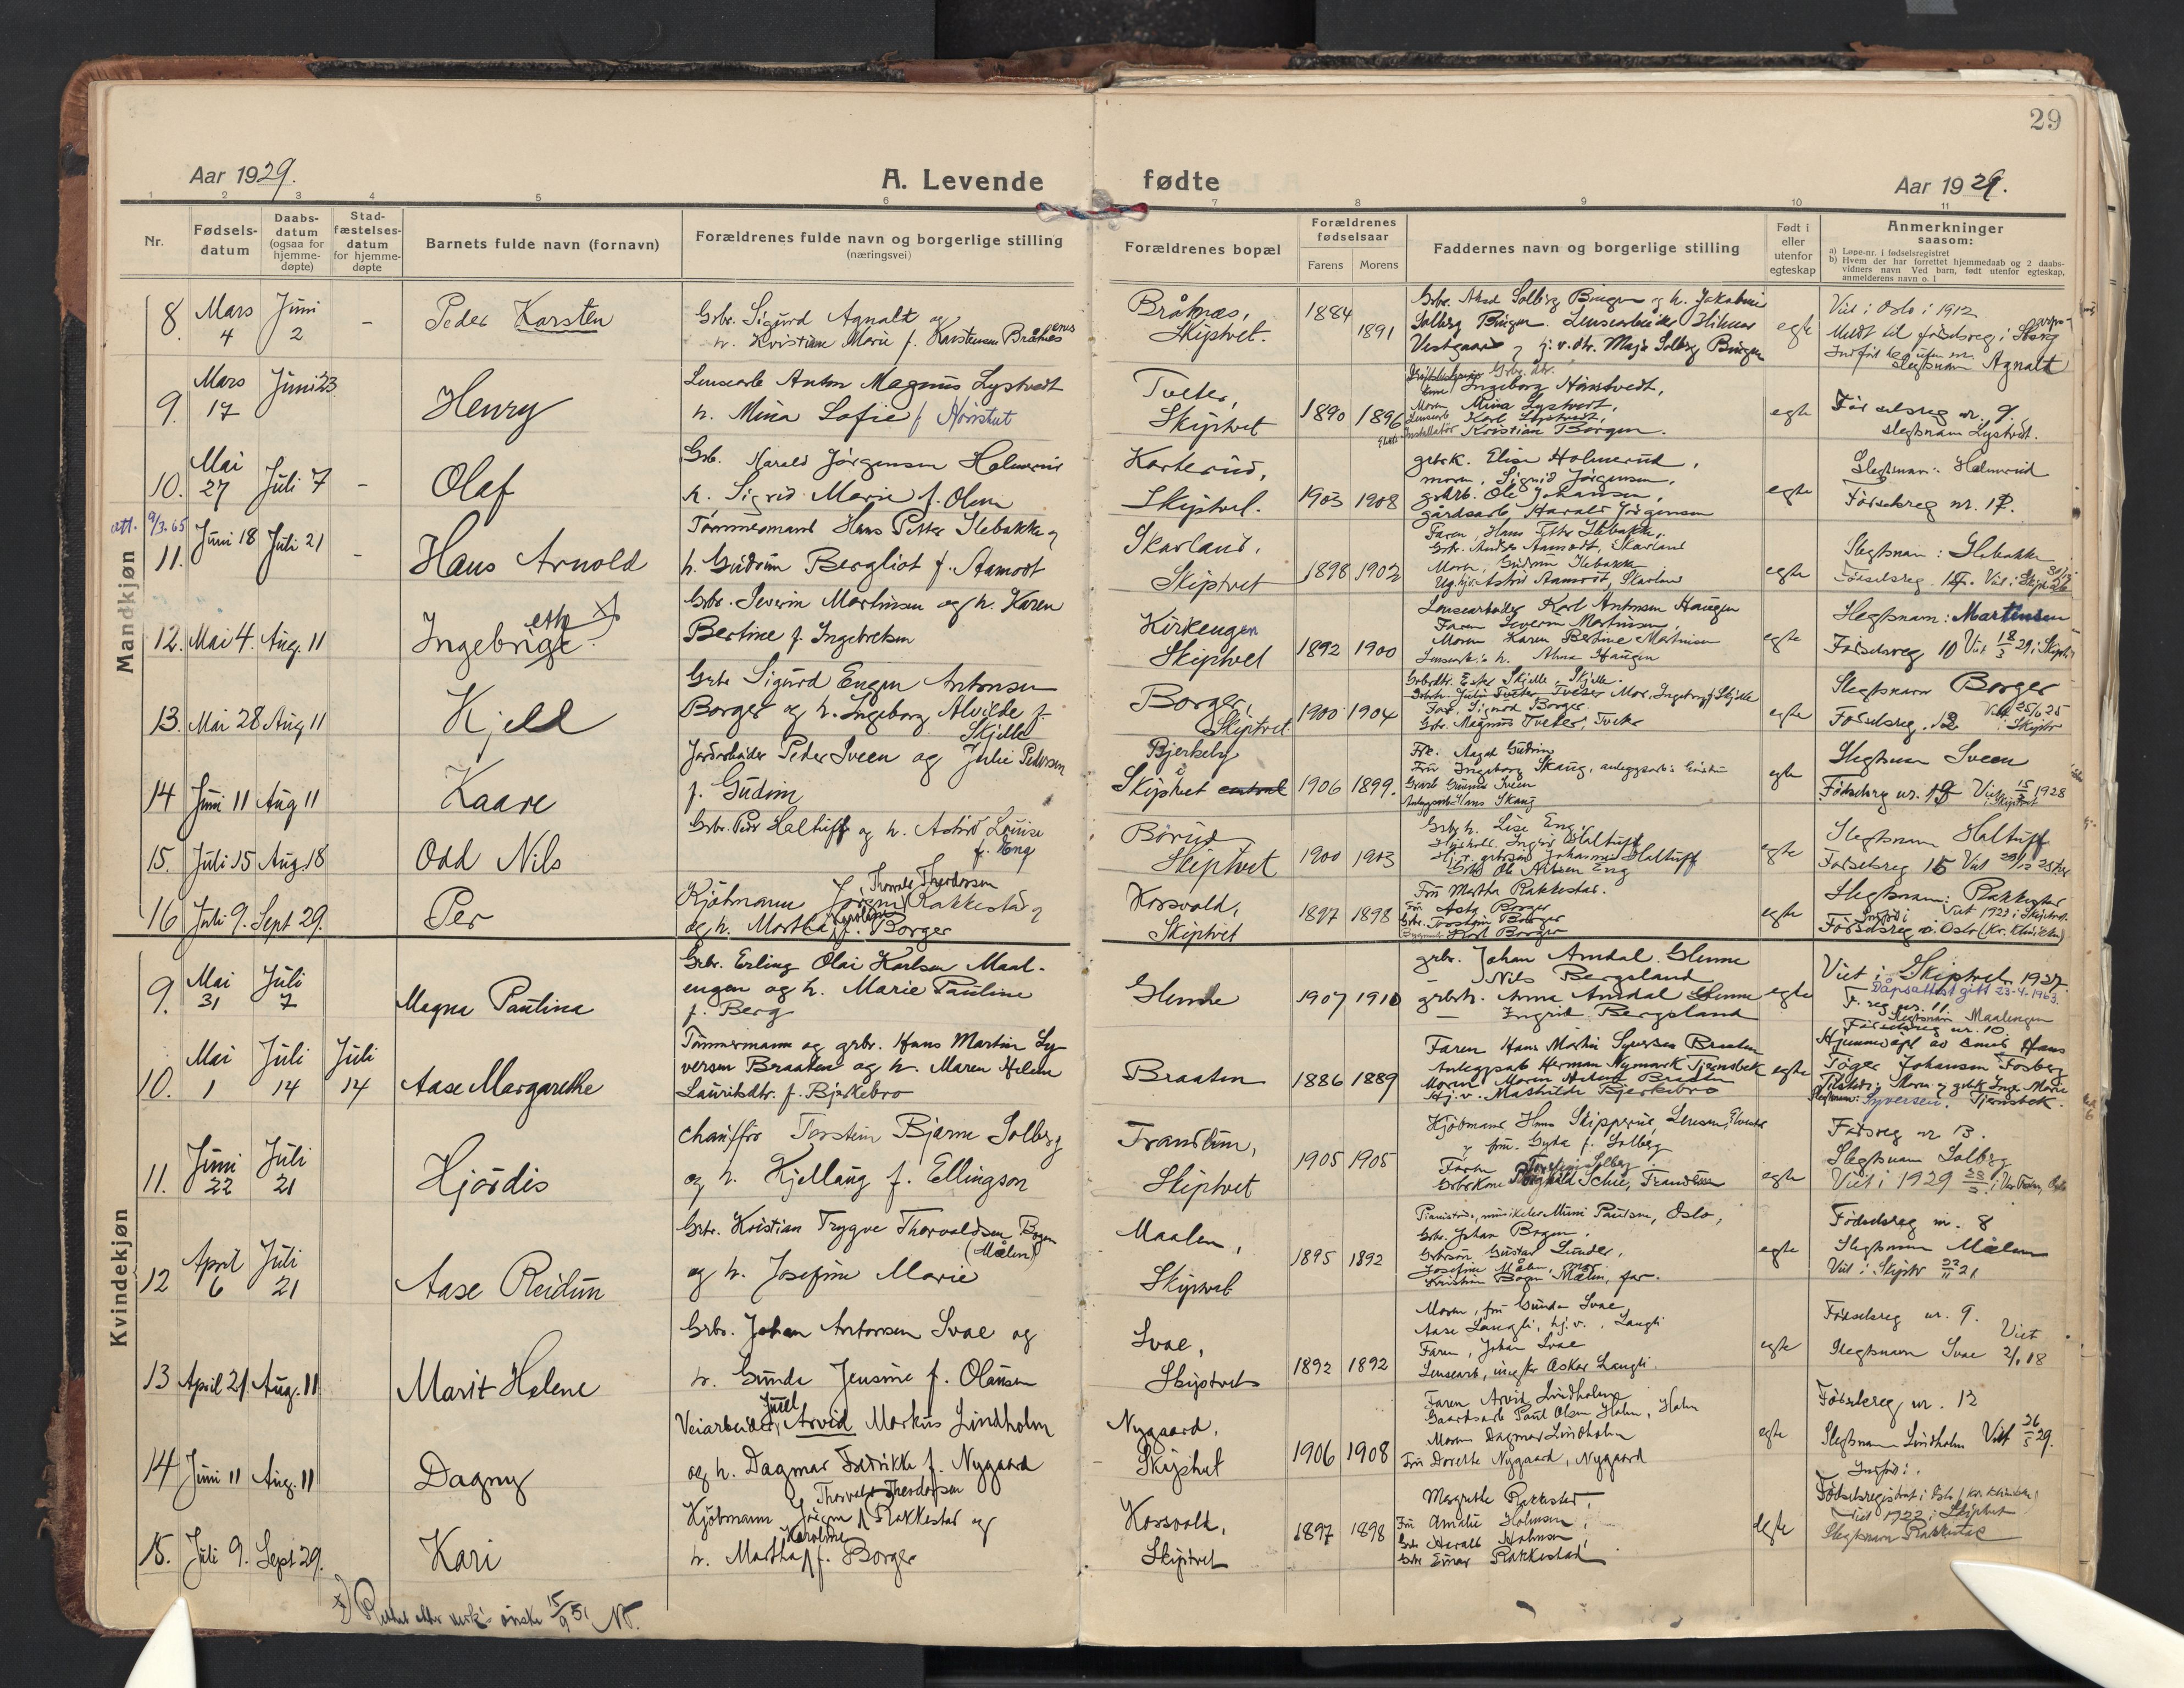 29
Aar 1929.
A. Levende
fødte
Aar 1929.
1 2 3 4 5 6 7 8 9 10 11
Nr.
Fødsels-
datum
Daabs-
datum
(ogsaa for
hjemme-
døpte)
Stad-
fæstelses-
datum
for hjemme-
døpte
Barnets fulde navn (fornavn)
Forældrenes fulde navn og borgerlige stilling
(næringsvei)
Forældrenes bopæl
Forældrenes
fødselsaar
Farens
Morens
Faddernes navn og borgerlige stilling
Født i
eller
utenfor
egteskap
Anmerkninger
saasom:
a) Løpe-nr. i fødselsregistret
b) Hvem der har forrettet hjemmedaab og 2 daabs-
vidners navn Ved barn, født utenfor egteskap,
anmelderens navn o. l
Mandkjøn
8. Mars 4 Juni 2 -
Peder Karsten
Grbr. Sigurd Agnalt og
h. Kristiane Marie f. Karstensen Bråtnes
Bråtnæs,
Skiptvet.
1884 1891
Solberg Bingen. Lensearbeider Hilmar
Vestgaard og hj.v. dtr. Maja Solberg Bingen
egte
Viet i Oslo i 1912
Slegtsnavn Agnalt
9. Mars 17 Juni 23
Henry
Lensearb Anton Magnus Lystvedt
h. Mina Sofie f.
Tveter,
Skiptvet
1890 1896
Ingeborg
Moren Mina Lystvedt,
Lensearb Karl Lystvedt,
Installatør Kristian Borgen.
egte
Fødselsreg nr. 9.
Slegtsnavn Lystvedt.
10. Mai 27 Juli 7 -
Olaf
Grb. Harald Jørgensen Holmerud
h. Sigrid Marie f. Olsen
Karterud,
Skiptvet.
1903 1908
grbrk. Elise Holmerud,
moren, Sigrid Jørgensen,
grbr. Ole Johansen,
gårdsarb Harald Jørgensen
egte
Slegtsnavn: Holmerud
Fødselsreg nr.
att. 9/3.65
11. Juni 18 Juli 21 -
Hans Arnold
Tømmermand Hans Petter Slebakke og
h. Gudrun Bergliot f. Aamodt
Skarland,
Skiptvet
1898 1902
Faren, Hans Petter Slebakke,
Grb. Anders Aamodt, Skarland
Moren, Gudrun Slebakke
Ug. hjv. Astrid Aamodt, Skarland
egte
Slegtsnavn: Slebakke
12. Mai 4. Aug. 11
Ingebrigt eth x)
Grbr. Severin Martinsen og h. Karen
Bertine f. Ingebretsen
Kirkengen
Skiptvet
1892 1900
Lensearbeider Karl Antonsen Haugen
Faren Severin Martinsen,
Moren Karen Bertine Martinsen
Lensearb.s h. Alma Haugen
egte
Slegtsnavn: Martinsen
Fødselsreg 10 Viet 18/3 29 i Skiptv
13. Mai 28 Aug 11
Kjell
Grbr Sigurd Eugen Antonsen
Borger og h. Ingeborg Alvilde f.
Skjelle
Borger,
Skiptvet.
1900 1904
Grbrdtr. Ester Skjelle, Skjelle.
Far, Sigurd Borger.
Grb. Magnus Tveter, Tveter
egte
Slegtsnavn Borger
Fødselsreg. 12
i Skiptv
14 Juni 11 Aug 11
Kaare
Jordarbeider Peder Sveen og Julie Pedersen
f. Gudim
Bjerkely
i
Skiptvet
1906 1899.
Frk. Aagot Gudim
Fru Ingeborg Skaug,
Anleggsarb Hans Skaug
egte
Slegtsnavn Sveen
Fødselsreg nr. Viet 15/ 1928
i Skiptvet
15. Juli 15 Aug. 18
Odd Nils
Grbr. Peder Haltuff og h. Astrid Louise
f. Eng
Borud
Skiptvet
1900 1903
Grbr h. Lise Eng,
Ingrid Haltuff
Johannes Haltuff
Grb Ole Nilsen Eng
egte
Slegtsnavn Haltuff
Fødselsreg 15
16 Juli 9. Sept 29.
Per
Thorvald Theodorsen
Kjøbmann Jørgen Rakkestad og
Karoline
og h. Martha f. Borger
Korsvold,
Skiptvet
1897 1898
Fru Martha Rakkestad.
Fr. Asta Borger
Grbr. Torstein Borger
Karl Borger
egte
Slegtsnavn: Rakkestad
Viet 1922 i Skiptvet.
Fødselsreg i Oslo (Kv. klinikken)
Kvindekjøn
9. Mai 31 Juli 7
Magna Paulina
Grbr. Erling Olai Karlsen Maal-
engen og h. Marie Pauline
f. Berg
Glenne
1907 1910
grbr. Johan Amdal Glenne
- Nils Bergsland
grbrh. Anna Amdal Glenne
- Ingrid Bergsland
egte
Viet i Skiptvet 1937.
Dåpsattest gitt 23-4-1963.
F. reg nr. 11.
Slegtsnavn Maalengen
10. Mai 1 Juli 14 Juli 14
Aase Margarethe
Tømmermann og grbr. Hans Martin Sy-
versen Braaten og h. Maren Helene
Lauritsdtr. f. Bjerkebro
Braaten
1886 1889
Faren Hans Martin Syversen Braaten
Anleggsarb Herman Nymark Tjernsbek
Moren Maren Helene Braaten
Hj.v. Mathilde Bjerkebro
egte
Fødselsreg nr. 10.
Hjemmedøpt av smed Hans
Tøger Johansen Fosberg
Tilstede: Moren og grbk Inga Marie
Slegtsnavn: Syversen. Tjernsbek.
11. Juni 22 Juli 21
Hjørdis
Chauffør Torstein Bjarne Solberg
og h. Hjellaug f. Ellingson
Trandum,
Skiptvet
1905 1905
Kjøbmann Hans Skipperud, Lensen,
og fru. Gyda f. Solberg
Faren Torstein Solberg
Grbrkone Ragnhild Schie, Trandum
egte
Fødsreg nr 13.
Slegtsnavn Solberg
Viet i 1929
12 April 6 Juli 21
Aase Reidun
Grbr. Kristian Trygve Thorvaldsen Bogen
(Målen)
og h. Josefine Marie
Maalen,
Skiptvet
1895 1892
Mimi Paulsen, Oslo,
Grbr. Johan Bogen,
Grbrsøn Gustav Lunder,
Josefine Målen, mor.
Kristian Bogen Målen, far.
egte
Fødselsreg nr. 8
Slegtsnavn Målen
Viet i Skiptv 22/11 21
13 April 21 Aug. 11
Marit Helene
Grbr. Johan Antonsen Svae og
h. Gunda Jensine f. Olausen
Svae,
Skiptvet
1892 1892
Moren, fru Gunda Svae,
Aase Langli, hj.v., Langli
Faren, Johan Svae
Lensearb, ungkr Oskar Langli.
egte
Fødselsreg nr. 9.
Viet
Slegtsnavn Svae 2/1 18
14 Juni 11 Aug. 11
Dagny
Juel
Veiarbeider, Arvid Markus Lindholm
og h. Dagmar Fredrikke f. Nygaard
Nygaard,
Skiptvet
1906 1908
Faren Arvid Lindholm
Gaardsarb Paul Olsen Holm, Holm
Moren Dagmar Lindholm
Fru Dorthe Nygaard, Nygaard
egte
Fødselsreg nr. 12
Slegtsnavn Lindholm Viet 26/5 29.
15. Juli 9. Sept 29.
Kari
Thorvald Theodorsen
Kjøbmann Jørgen Rakkestad og
Karoline
h. Martha f. Borger
Korsvold,
Skiptvet
1897 1898
Margrethe Rakkestad,
Fru Amalie Holmsen,
Grbr Harald Holmsen,
Grbr Einar Rakkestad
egte
Indført i
Fødselsregistret i Oslo (Kv. klinikken)
Viet 1922 i Skiptvet
Slegtsnavn Rakkestad
x) Rettet efter ønske 15/9 51